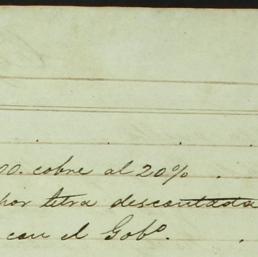 00. cobre al 20%
por letra descontada
con el Gobº.